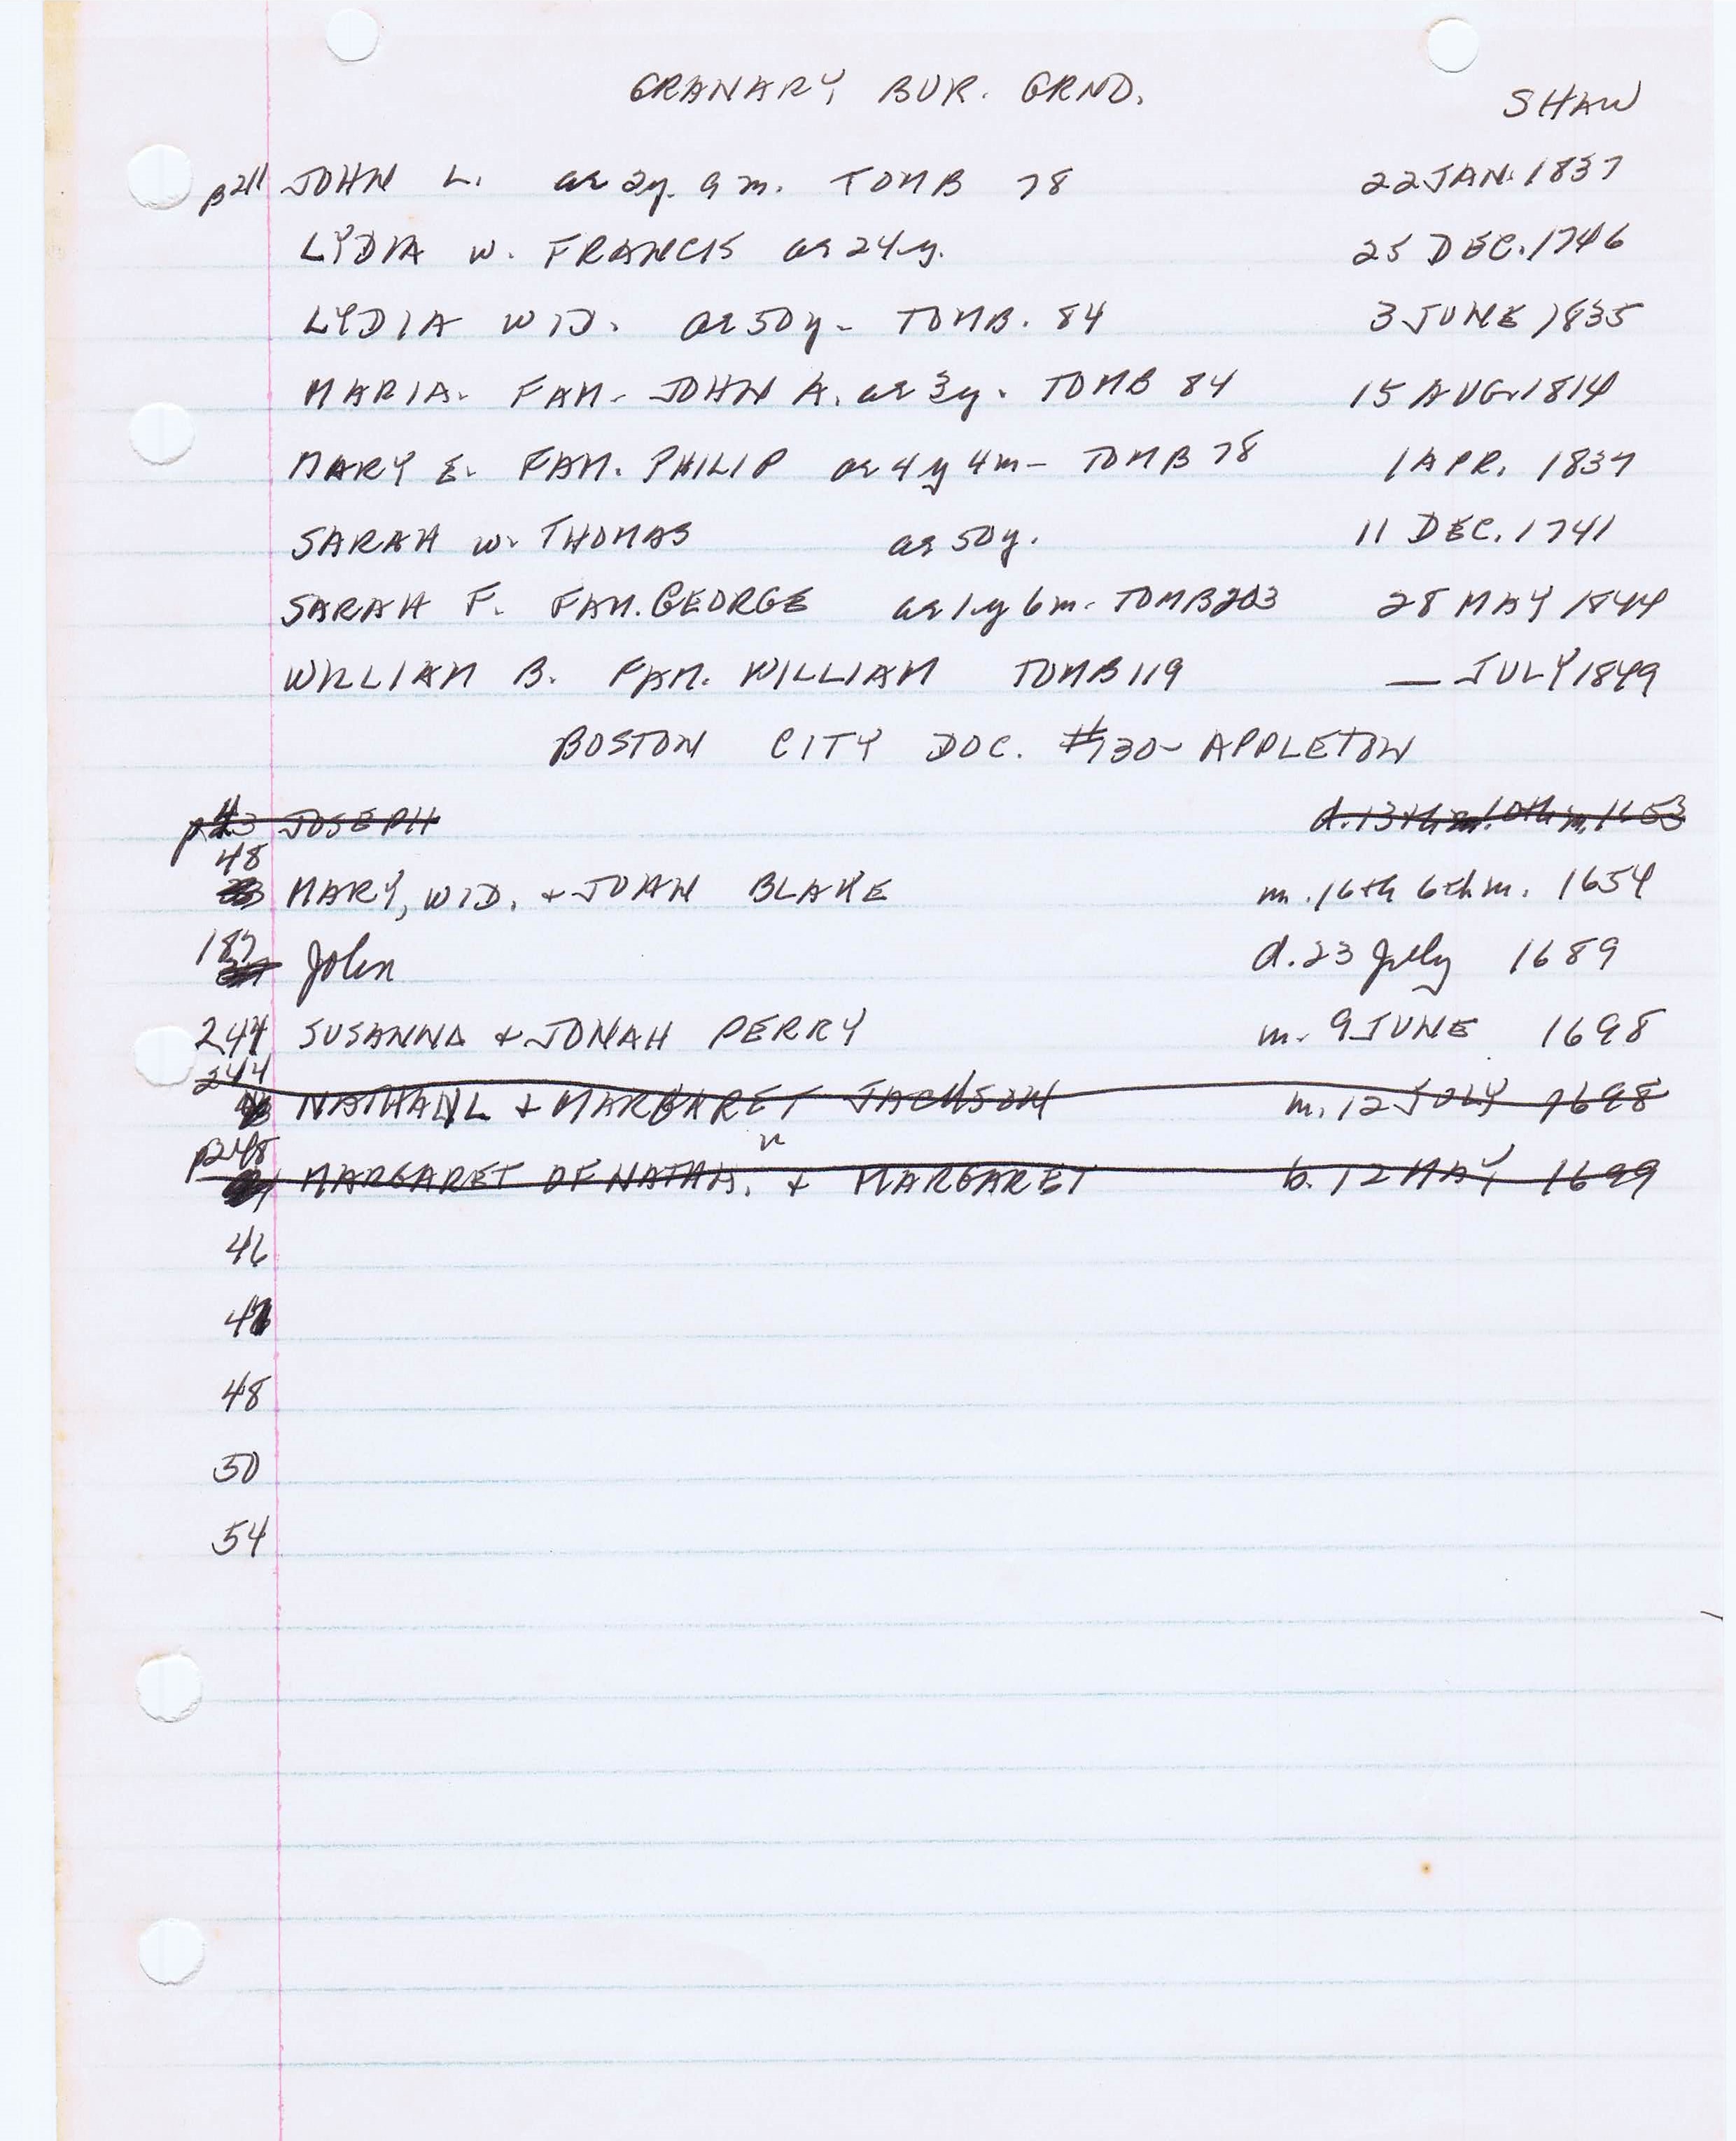 GRANARY BUR. GRND. SHAW
p211 JOHN L. ae 2y. 9m. TOMB 78 22 JAN. 1837
LYDIA w. FRANCIS ae 24y. 25 DEC. 1746
LYDIA WID. ae 50y - TOMB. 84 3 JUNE 1835
MARIA. FAM. JOHN A. ae 3y. TOMB 84 15 AUG. 1814
MARY E. FAM. PHILIP ae 4y 4m - TOMB 78 1 APR. 1837
SARAH w. THOMAS ae 50y. 11 DEC. 1741
SARAH F. FAM. GEORGE ae 1y 6m - TOMB 203 28 MAY 1844
WILLIAM B. FAM. WILLIAM TOMB 119 — JULY 1849
BOSTON CITY DOC. #130 - APPLETON
JOSEPH d. 13th 10th m. 1653
48 MARY, WID. + JOHN BLAKE m. 16th 6th m. 1654
187 John d. 23 July 1689
244 SUSANNA + JONAH PERRY m. 9 JUNE 1698
244 NATHANL + MARGARET JACKSON m. 12 JULY 1698
p248 MARGARET OF NATHN. + MARGARET b. 12 MAY 1699
46
47
48
50
54